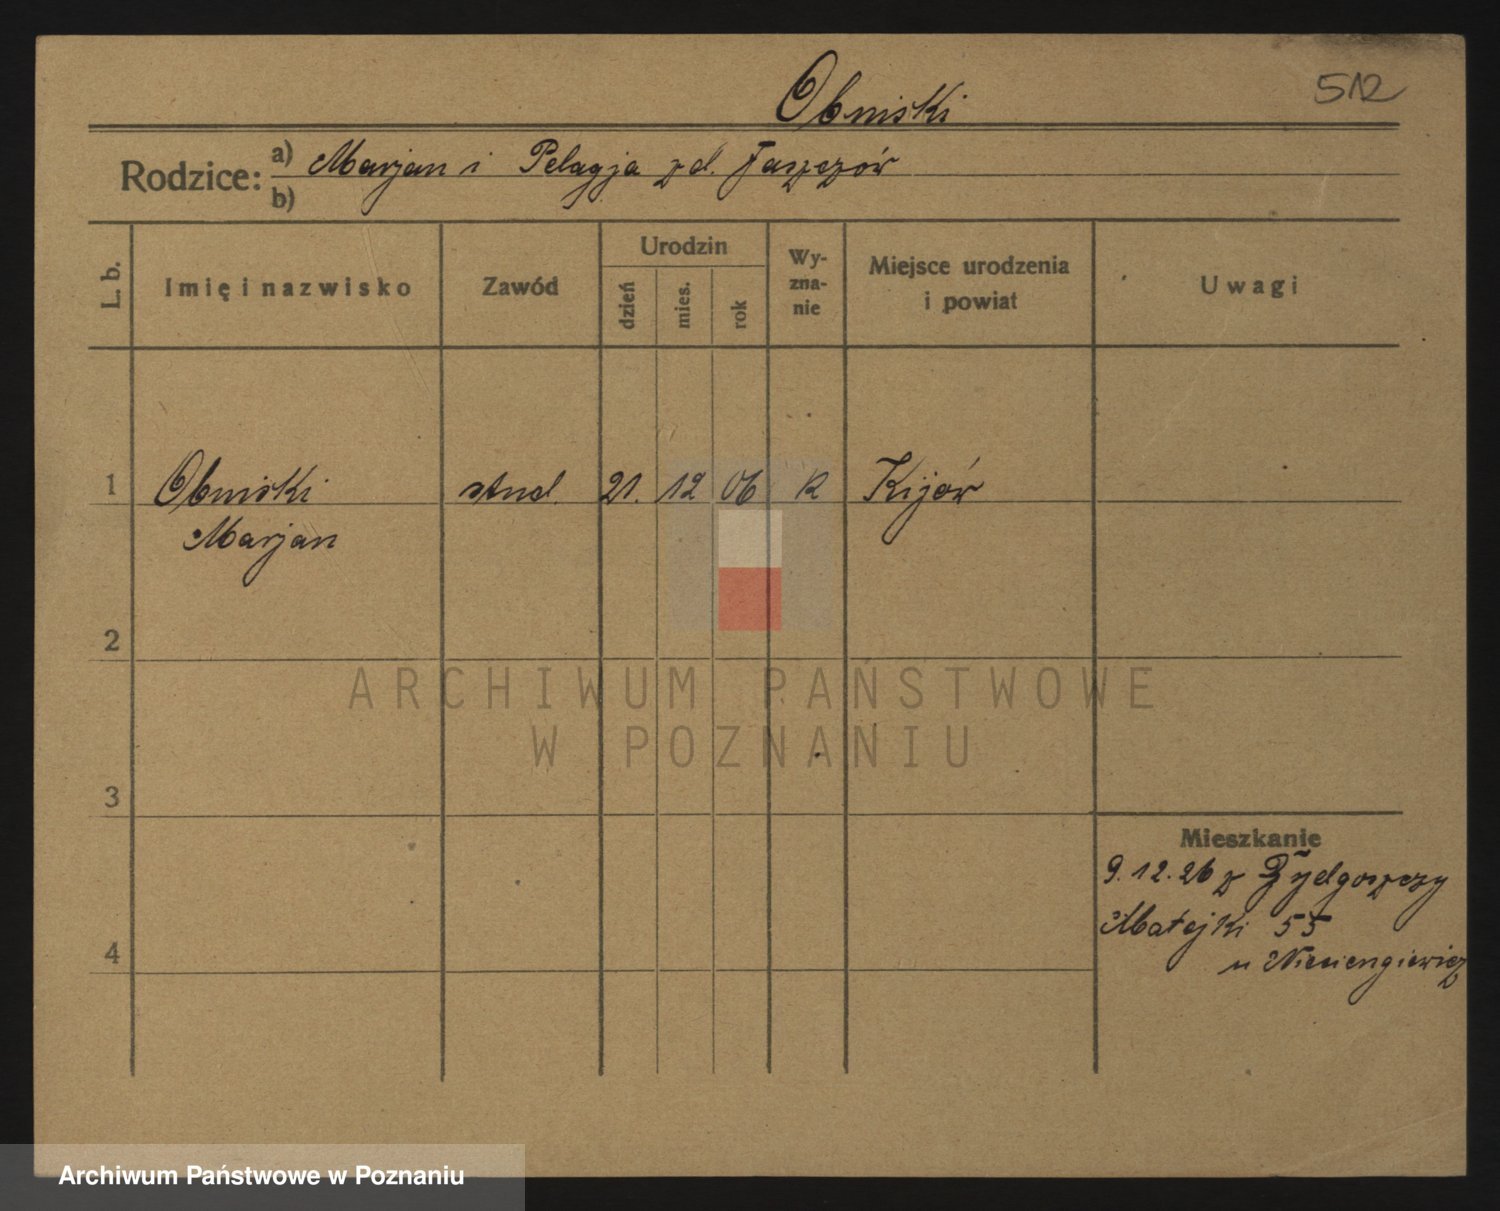 Obniski
512
Rodzice:
a) Marjan i Pelagja z d.
b)
L. b.
Imię i nazwisko
Zawód
Urodzin
dzień
mies.
rok
Wy-
zna-
nie
Miejsce urodzenia
i powiat
Uwagi
1 Obniski stud. 21. 12 06 k Kijów
Marjan
2
3
4
Mieszkanie
9.12.26 z Bydgoszczy
Matejki 55
u
ARCHIWUM PAŃSTWOWE
W POZNANIU
Archiwum Państwowe w Poznaniu